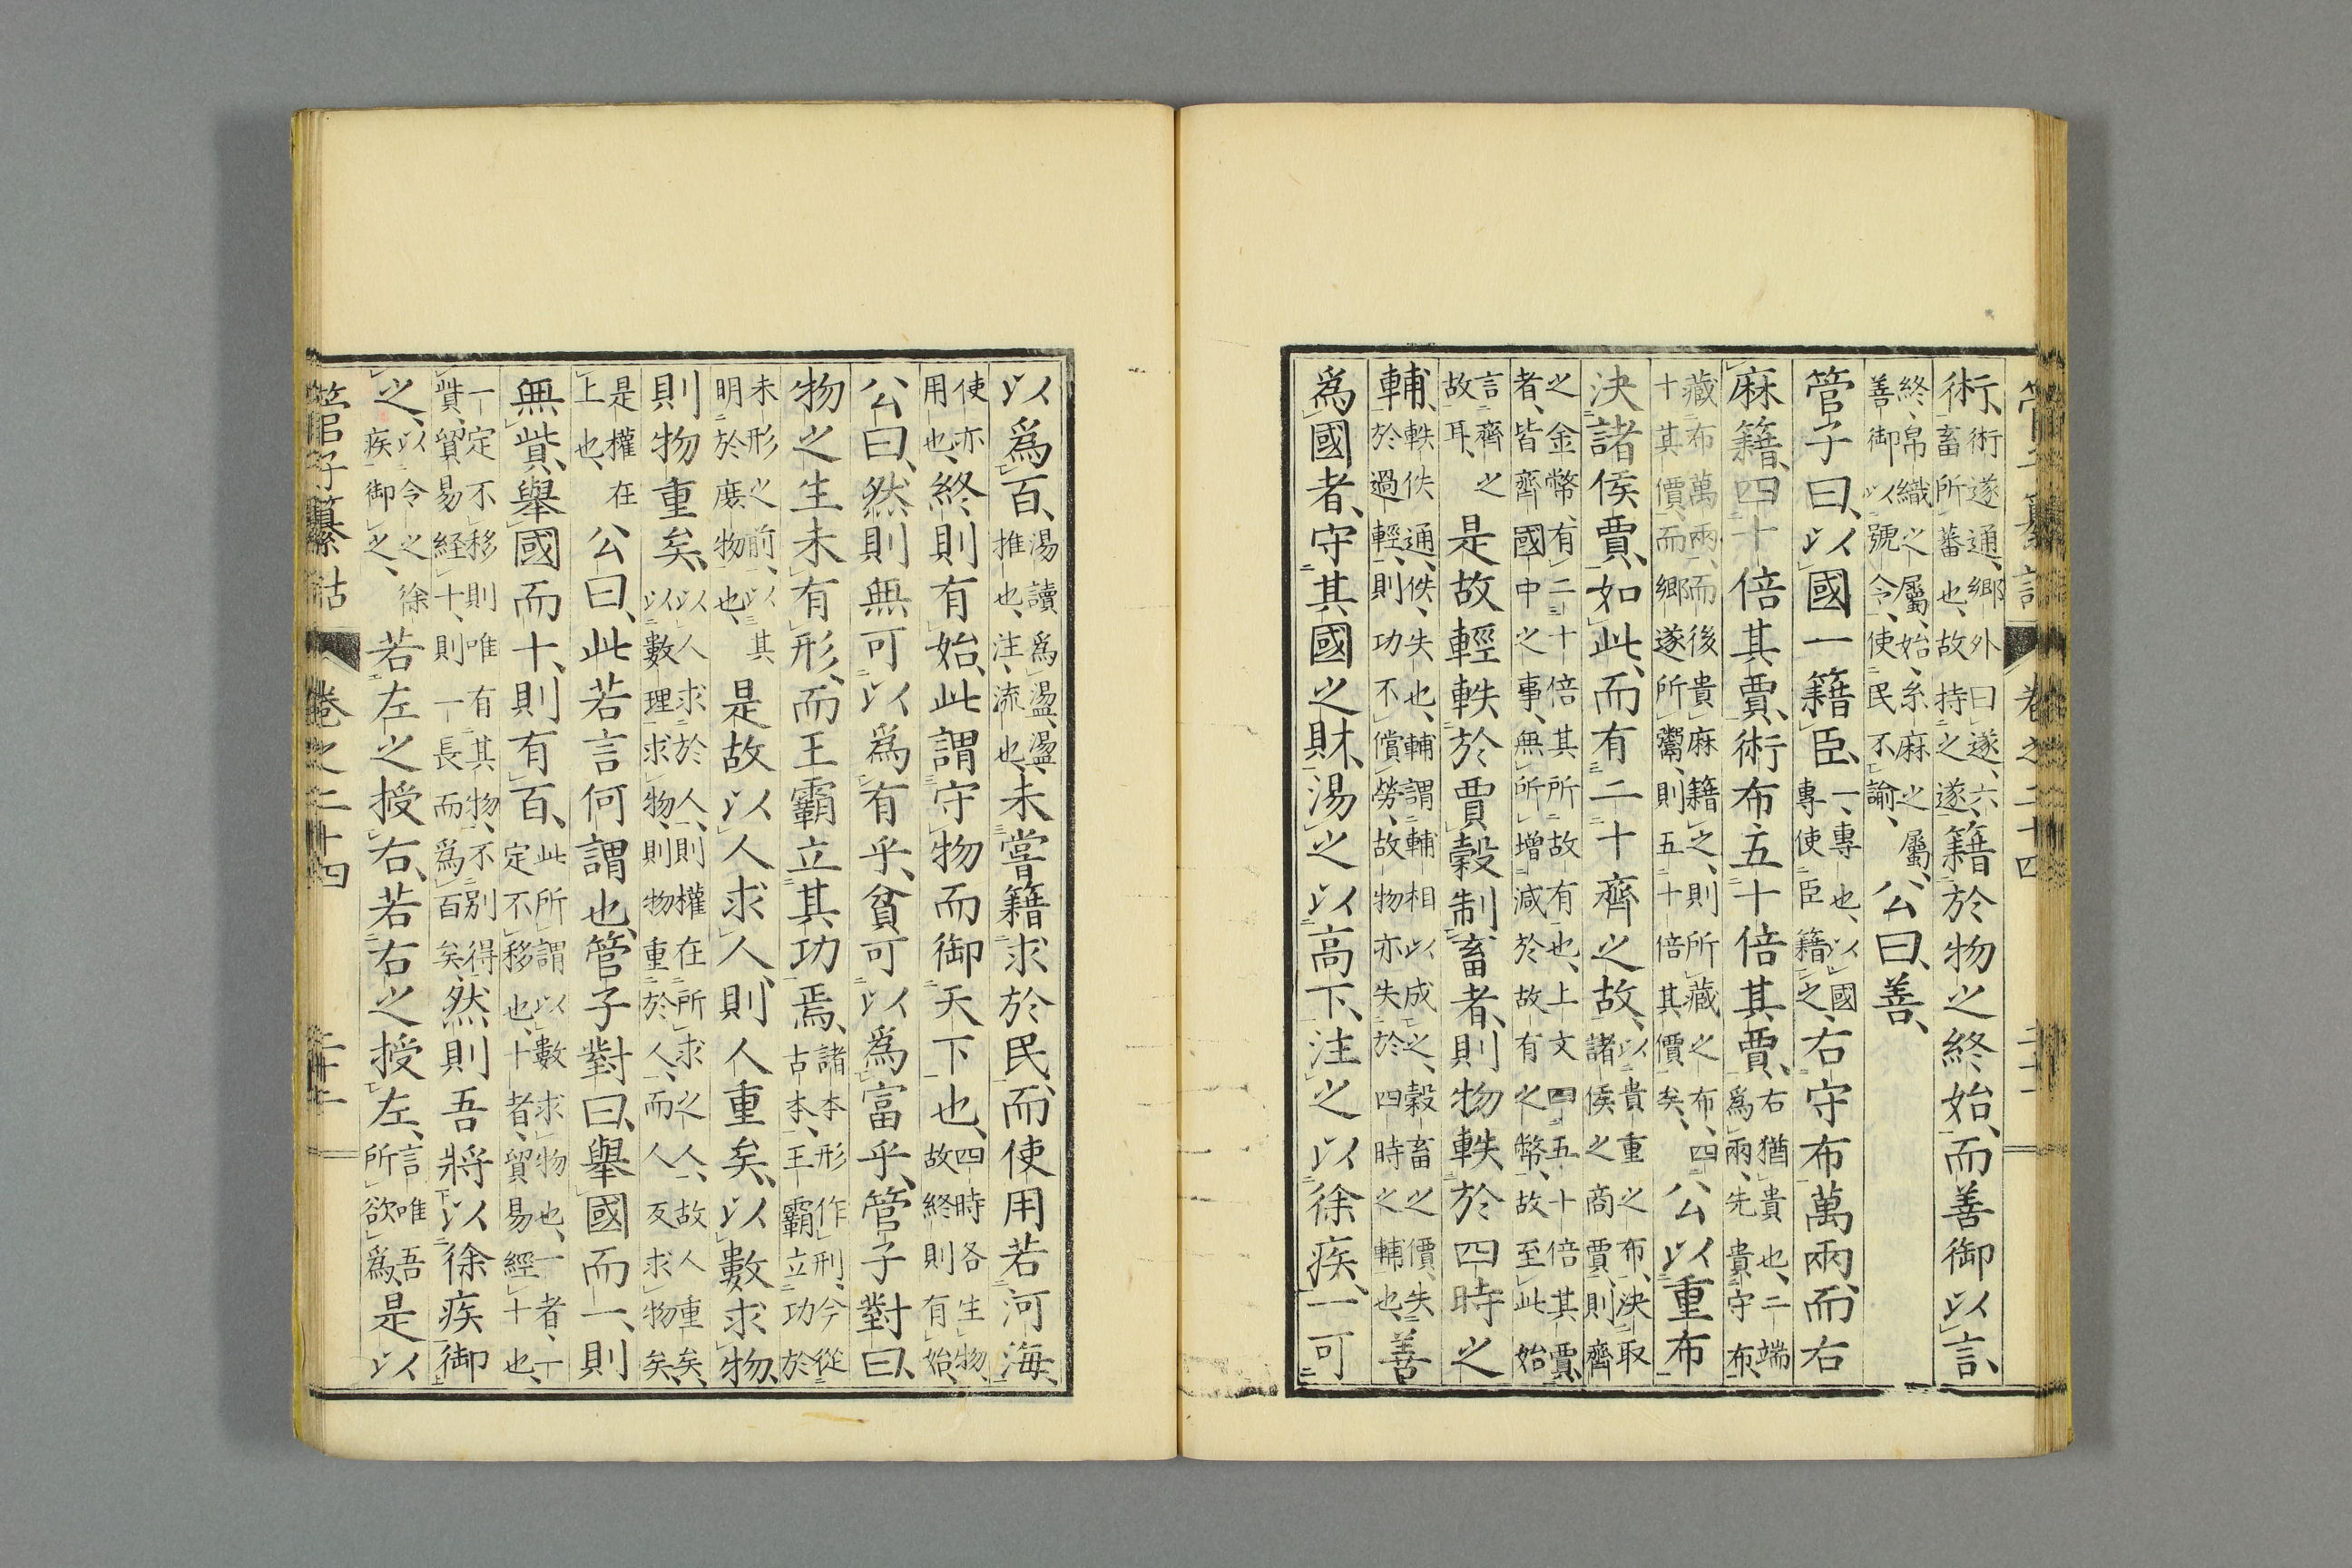 卷之二十四
術、術遂通、鄉外曰遂、六畜所蕃也、故持之遂、籍於物之終始、而善御以言、
終、帛織之屬、始、糸麻之屬、善御以號令、使民不諭、公曰、善、
管子曰、以國一籍臣、一、專也、以國專使臣籍之、右守布萬兩、而右
麻籍、四十倍其賈、術布五十倍其賈、右猶貴也、二端爲兩、先貴守布、
藏布萬兩、而後貴麻籍之、則所藏之布、四十其價、而鄉遂所鬻、則五十倍其價矣、公以重布
決諸侯賈、如此、而有二十齊之故、以貴重之布、決取諸侯之商賈、則齊
之金幣、有二十倍其所故有也、上文四五十倍其賈、者、皆齊國中之事、無所增減於故有之幣、故至此始
言齊之故耳、是故輕軼於賈穀制畜者、則物軼於四時之
輔、軼佚通、佚、失也、輔謂輔相以成之、穀畜之價、失於過輕、則功不償勞、故物亦失於四時之輔也、善
爲國者、守其國之財、湯之以高下、注之以徐疾、一可
以爲百、湯讀爲盪、盪、推也、注、流也、未嘗籍求於民、而使用若河海、
使亦用也、終則有始、此謂守物而御天下也、四時各生物、故終則有始、
公曰、然則無可以爲有乎、貧可以爲富乎、管子對曰、
物之生未有形、而王霸立其功焉、諸本形作刑、今從古本、王霸立功於
未形之前、以其明於庶物也、是故以人求人、則人重矣、以數求物、
則物重矣、以人求於人、則權在所求之人、故人重矣、以數理求物、則物重於人、而人反求物矣、
是權在上也、公曰、此若言何謂也、管子對曰、舉國而一、則
無貲、舉國而十、則有百、此所謂以數求物也、一者、一定不移也、十者、貿易經十也、
一定不移則唯有其物、不別得貲、貿易経十、則一長而爲百矣、然則吾將以徐疾御
之、以令之徐疾御之、若左之授右、若右之授左、言唯吾所欲爲、是以
管子纂詁 卷之二十四